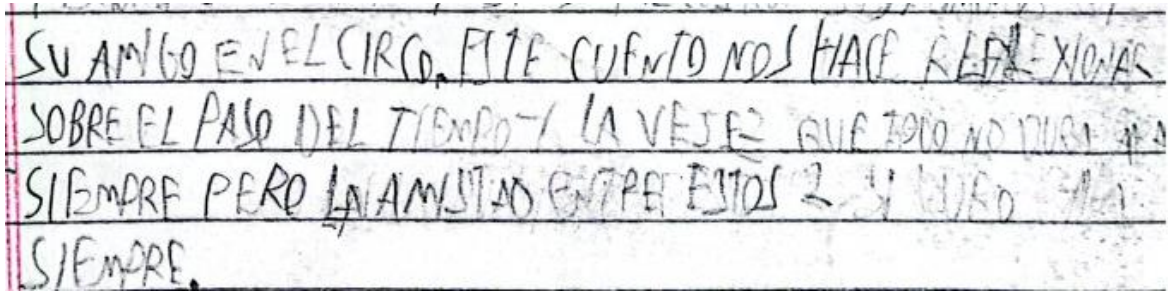 SU AMIGO EN EL CIRCO. ESTE CUENTO NOS HACE REFLEXIONAR
SOBRE EL PASO DEL TIEMPO Y LA VEJEZ QUE TODO NO DURA PARA
SIEMPRE PERO LA AMISTAD ENTRE ESTOS 2 SI DURO PARA
SIEMPRE.